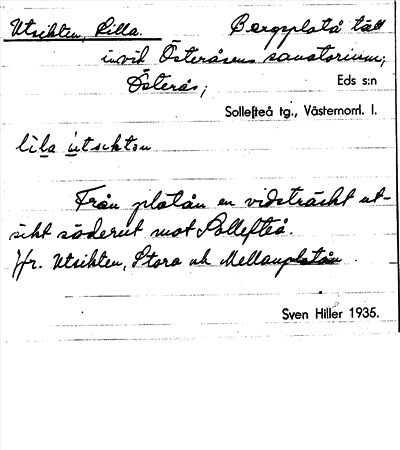 Utsikten, Lilla. Bergsplatå tätt
invid Österåsens sanatorium;
Österås; Eds s:n
Sollefteå tg., Västernorrl. l.
lila utsiktən
Från platån en vidsträckt ut-
sikt söderut mot Sollefteå.
Jfr. Utsikten, Stora och Mellanplatån
Sven Hiller 1935.